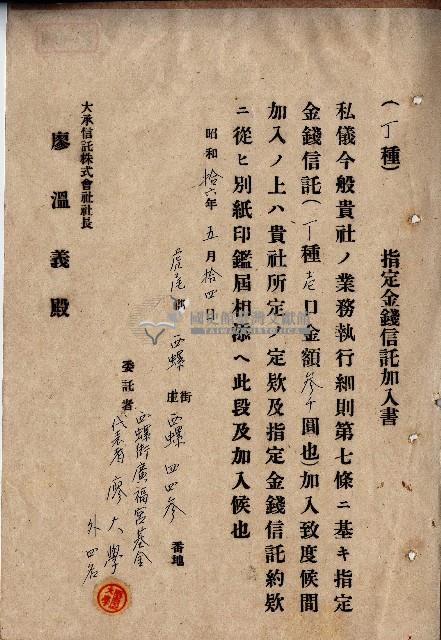 (丁種)　指定金錢信託加入書
私儀今般貴社ノ業務執行細則第七條ニ基キ指定
金錢信託(丁種壱口金額參千圓也)加入致度候間
加入ノ上ハ貴社所定ノ定款及指定金錢信託約款
ニ從ヒ別紙印鑑屆相添ヘ此段及加入候也
昭和拾六年五月拾四日
虎尾郡西螺街庄西螺四四參番地
委託者
西螺街廣福宮基金
代表者廖大學
外四名
大承信託株式會社社長
廖溫義殿
國史館臺灣文獻館
TAIWAN HISTORICA